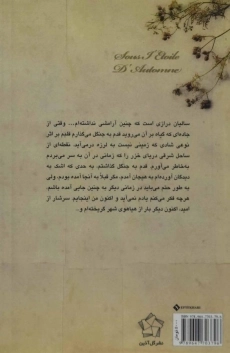 Sous l'Etoile
D'Automne
سالیان درازی است که چنین آرامشی نداشته‌ام... وقتی از
جاده‌ای که گیاه بر آن می‌روید قدم به جنگل می‌گذارم قلبم بر اثر
نوعی شادی که زمینی نیست به لرزه درمی‌آید. نقطه‌ای از
ساحل شرقی دریای خزر را که زمانی در آن به سر می‌بردم
به‌خاطر می‌آورم. قدم به جنگل گذاشتم. به حدی که اشک به
دیدگان آورده‌ام به هیجان آمدم. مگر قبلاً به آنجا آمده بودم. ولی
به طور حتم می‌باید در زمانی دیگر به چنین جایی آمده باشم.
هرچه فکر می‌کنم یادم نمی‌آید و اکنون من اینجایم. سرشار از
امید. اکنون دیگر بار از هیاهوی شهر گریخته‌ام و...